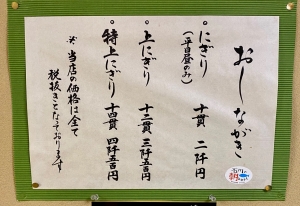 おしながき
。にぎり 十貫 二阡円
(平日昼のみ)
。上にぎり 十二貫 三阡五百円
。特上にぎり 十四貫 四阡五百円
※当店の価格は全て
税抜きとなっております
石川の